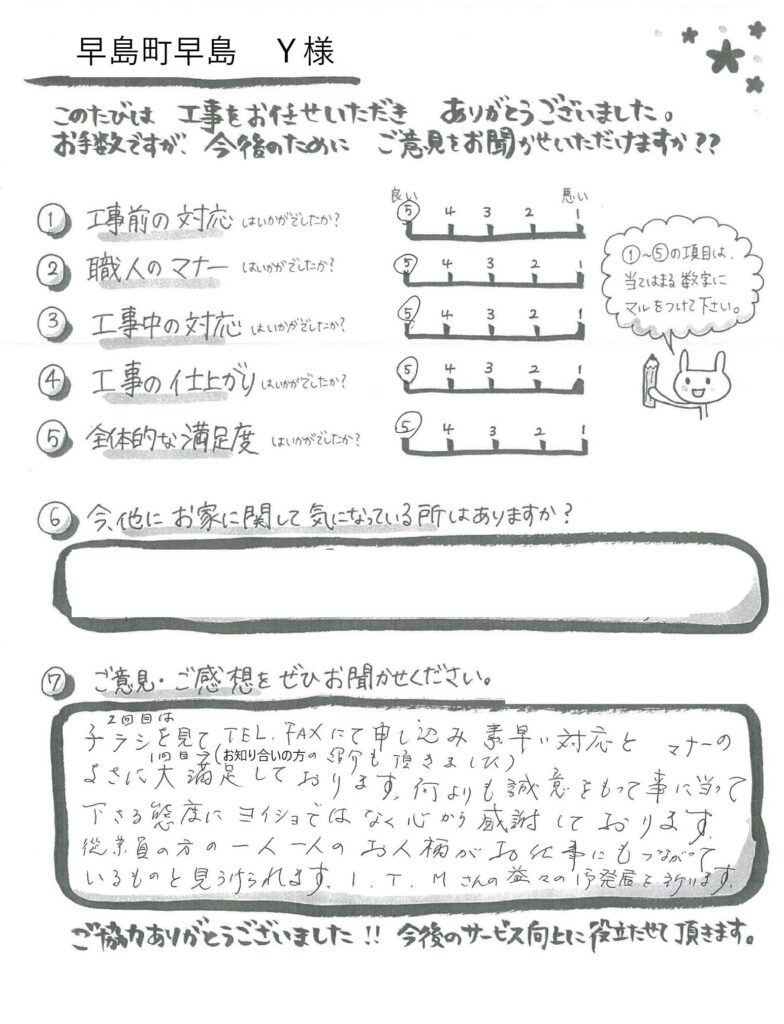 早島町早島　Y様
このたびは 工事をお任せいただき ありがとうございました。
お手数ですが、今後のために ご意見をお聞かせいただけますか??
良い 悪い
① 工事前の対応 はいかがでしたか? 5 4 3 2 1
② 職人のマナー はいかがでしたか? 5 4 3 2 1
③ 工事中の対応 はいかがでしたか? 5 4 3 2 1
④ 工事の仕上がり はいかがでしたか? 5 4 3 2 1
⑤ 全体的な満足度 はいかがでしたか? 5 4 3 2 1
①~⑤の項目は、
当てはまる数字に
マルをつけて下さい。
⑥ 今、他にお家に関して気になっている所はありますか?
⑦ ご意見・ご感想をぜひお聞かせください。
2回目は
チラシを見てTEL.FAXにて申し込み 素早い対応と マナーの
1回目は(お知り合いの方の紹介も頂きました)
よさに大満足しております。何よりも誠意をもって事に当って
下さる態度にヨイショではなく心から感謝しております。
従業員の方の一人一人のお人柄がお仕事にもつながって
いるものと見うけられます。I.T.Mさんの益々の御発展を祈います。
ご協力ありがとうございました!! 今後のサービス向上に役立たせて頂きます。